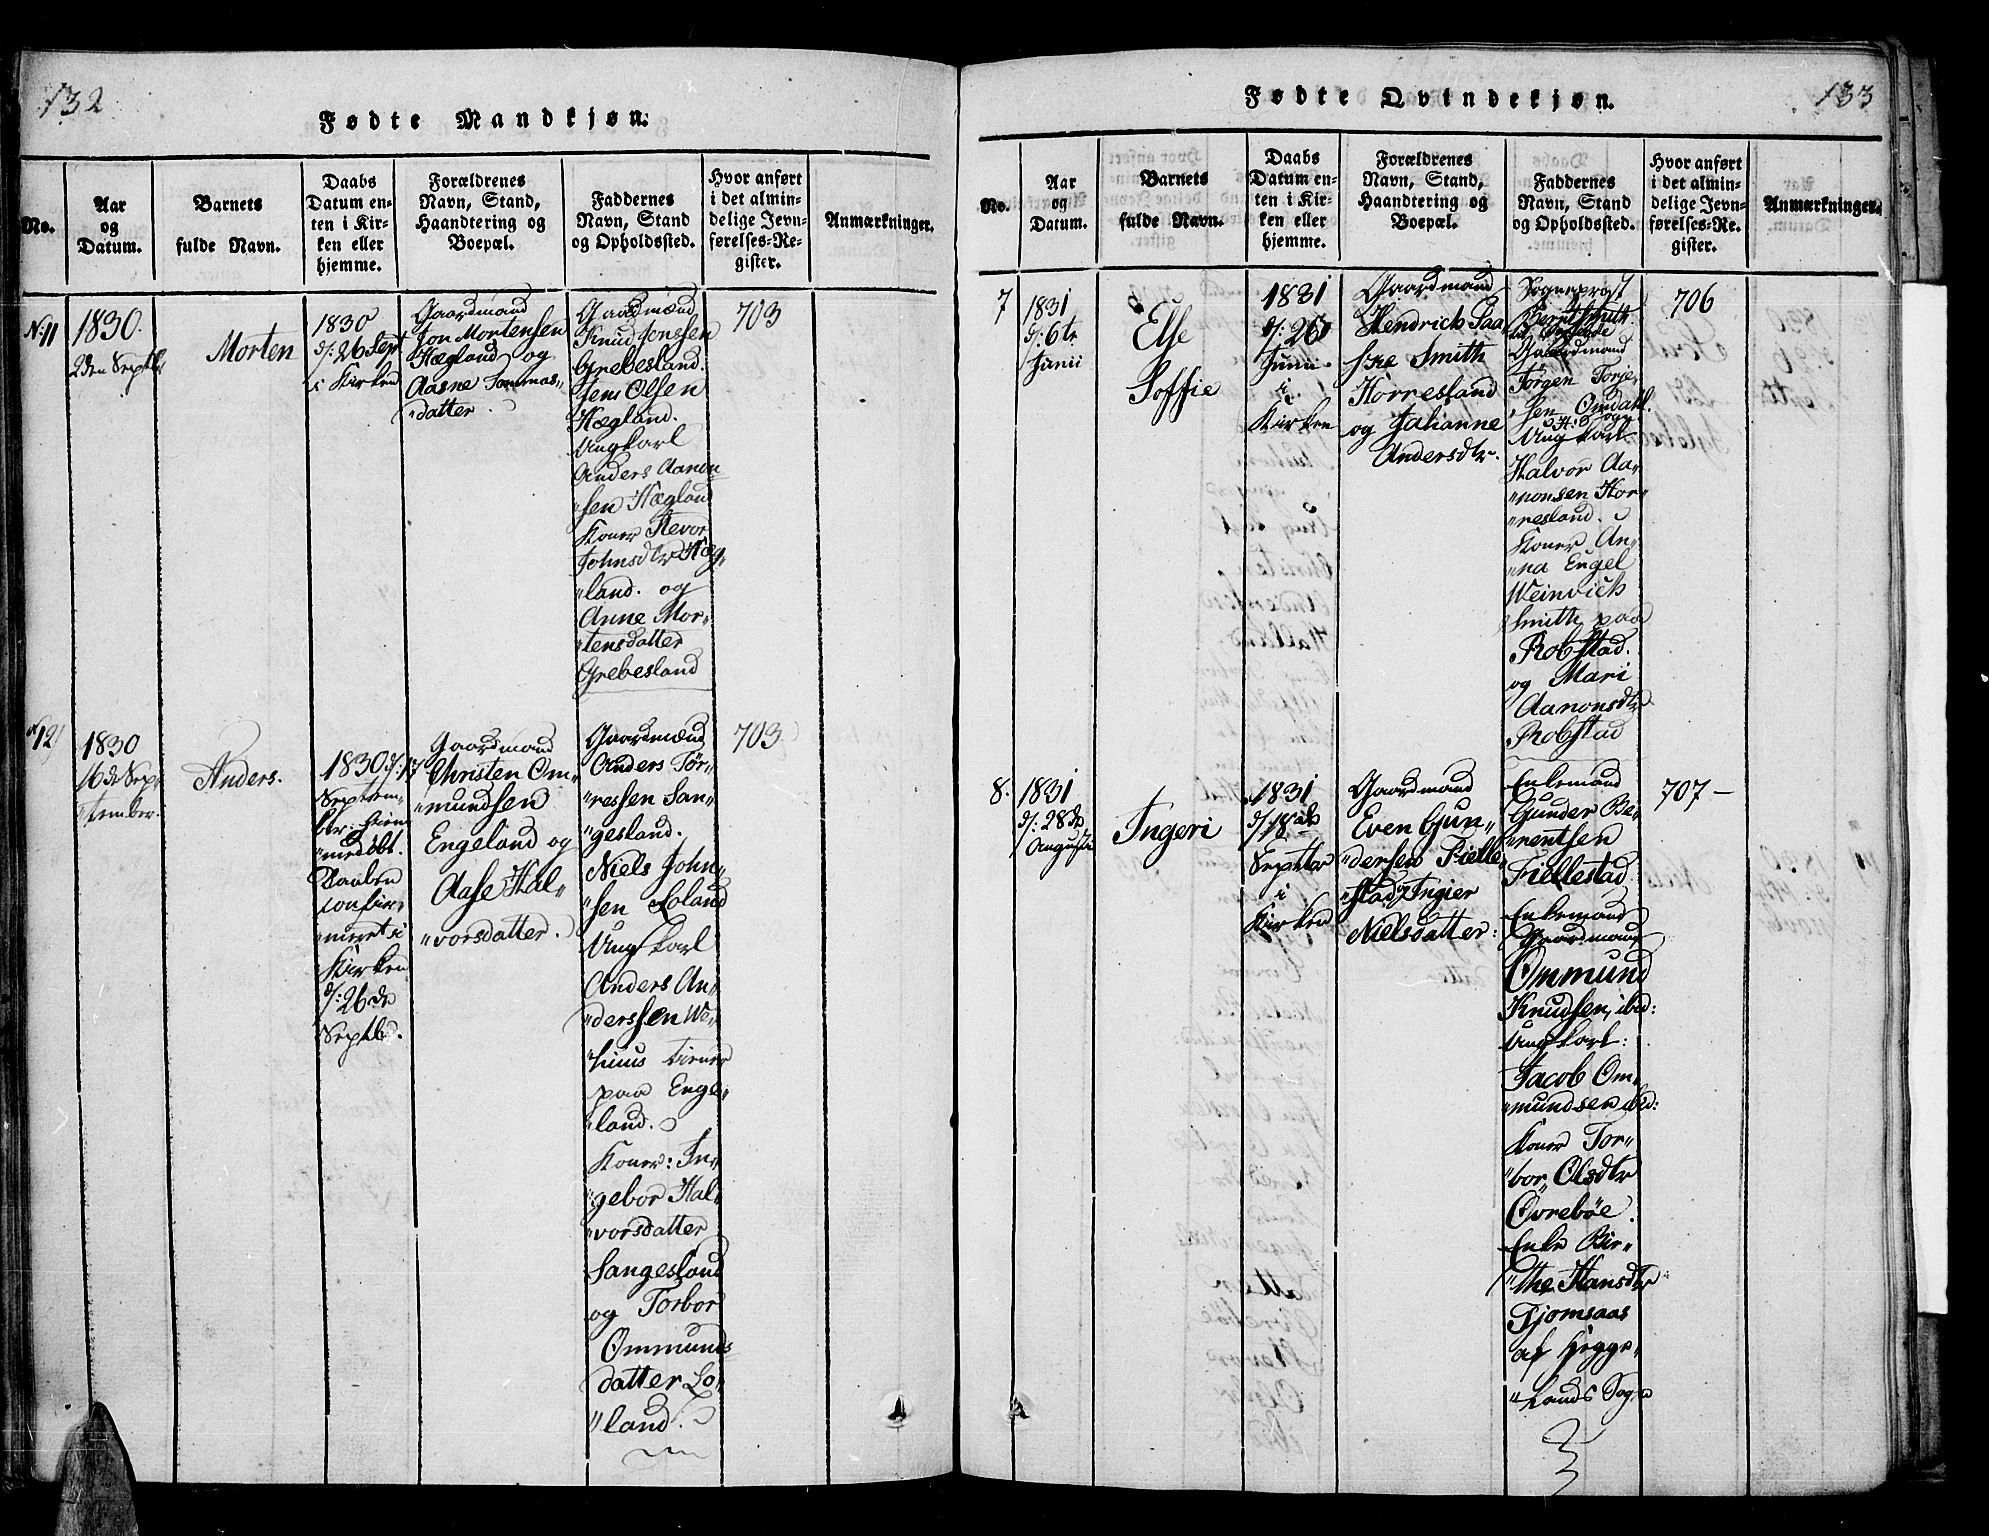 132
Fødte Mandkjøn.
No.
Aar
og
Datum.
Barnets
fulde Navn.
Daabs
Datum en-
ten i Kir-
ken eller
hjemme.
Forældrenes
Navn, Stand,
Haandtering og
Boepæl.
Faddernes
Navn, Stand
og Opholdssted.
Hvor anført
i det almin-
delige Jevn-
førelses-Re-
gister.
Anmærkninger.
No 11
1830.
2den Septbr
Morten
1830
d/: 26 Sept
i Kirken
Gaardmand
Jon Mortensen
Hægland og
Aasne Tommas-
"datter.
Gaardmænd
Knud Jensen
Grebesland.
Jens Olsen
Hægland.
Ungkarl
Anders Aanon-
"sen Hægland
Koner Hevor
Johnsdtr Hæg-
"land. og
Anne Mor-
"tensdatter
Grebesland
703
12
1830
16de Sep-
"tember.
Anders.
1830 d/: 17
Septem-
ber: hiem-
"medøbt.
Daaben
confir-
"meret i
Kirken
d/: 26de
Septb.
Gaardmand
Christen Om-
"mundsen
Engeland og
Aase Hal-
"vorsdatter.
Gaardmænd
Anders Tør-
"ressen San-
"gesland.
Niels John-
"sen Loland
Ungkarl
Anders An-
"derssen We-
tiener
paa Enge-
"land.
Koner: In-
"gebor Hal-
"vorsdatter
Sangesland
og Torbor
Ommunds
datter Lo-
"land.
703
133
Fødte Qvindekjøn.
No.
Aar
og
Datum.
Barnets
fulde Navn.
Daabs
Datum en-
ten i Kir-
ken eller
hjemme.
Forældrenes
Navn, Stand,
Haandtering og
Boepæl.
Faddernes
Navn, Stand
og Opholdssted.
Hvor anført
i det almin-
delige Jevn-
førelses-Re-
gister.
Anmærkninger.
7
1831
d/: 6te
Junii
Else
Soffie
1831
d/: 26
Junii
i
Kirken
Gaardmand
Hendrich Saa-
bye Smith
Horresland
og Johanne
Andersdtr.
Sognepræst
Bernt Smith
Gaardmand
Jørgen Torje-
"sen Omdahl.
Ungkarl
Halvor Aa-
"nonsen Hor-
"resland.
Koner An-
"na Engel
Weinvich
Smith paa
Robstad.
og Mari
Aanonsdtr
Robstad
706
8.
1831
d/: 28de
Augusti
Ingeri
1831
d/ 18de
Septbr
i
Kirken
Gaardmand
Even Gun-
"dersen Fielle-
"stad, Ingier
Nielsdatter:
Enkemand
Gunder Be-
"rentsen
Fiellestad
Enkemand
Gaardmand
Ommund
Knudsen, ibid:
Ungkarl:
Jacob Om-
"mundsen ibid:
Koner Tor-
"bor Olsdtr
Øvrebøe.
Enke Bir-
"the Hansdtr
Tjomsaas
af Hegge-
"lands Sogn
707 -